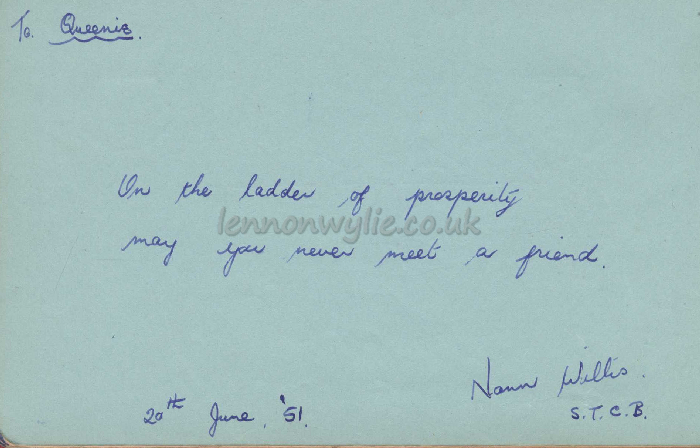 To. Queenie.
On the ladder of prosperity
lennonwylie.co.uk
may you never meet a friend.
Nann Willis.
20th June, '51.
S.T.C.B.